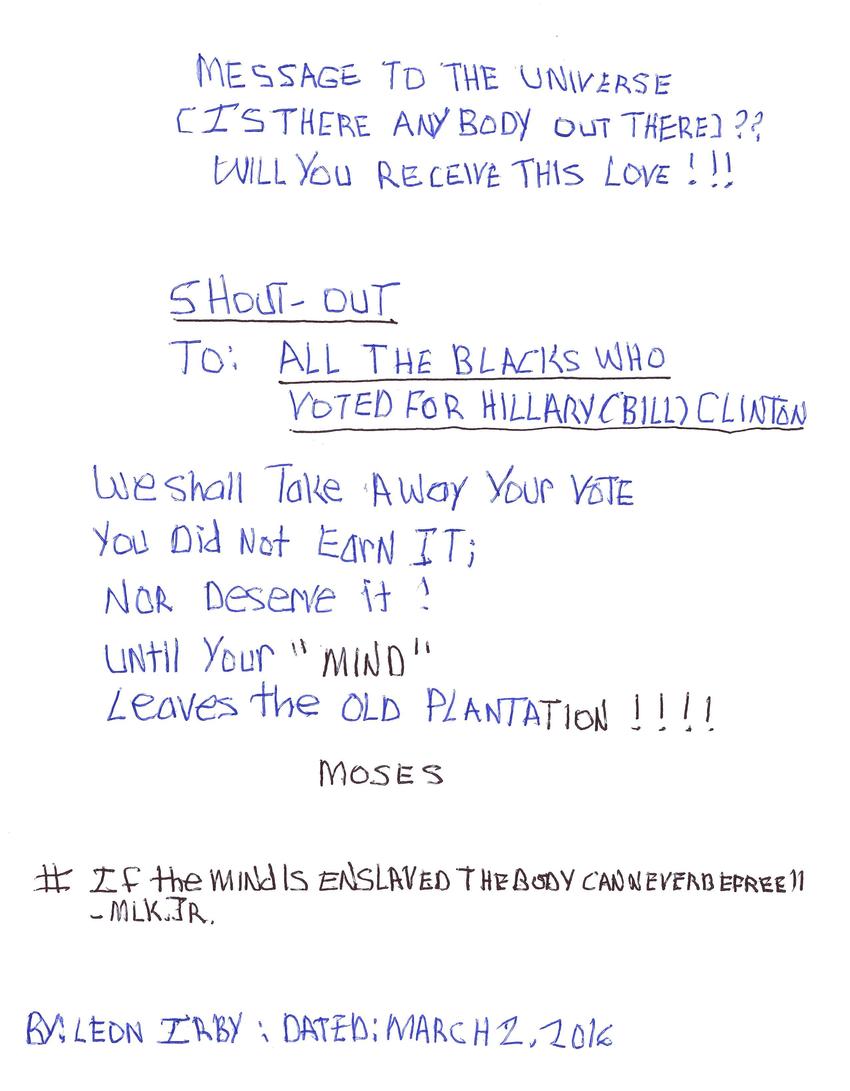 MESSAGE TO THE UNIVERSE
[IS THERE ANY BODY OUT THERE]??
WILL YOU RECEIVE THIS LOVE!!!
SHOUT-OUT
TO: ALL THE BLACKS WHO
VOTED FOR HILLARY (BILL) CLINTON
We shall Take AWay Your VOTE
You Did Not EarN IT;
NOR Deserve it!
UNtil Your "MIND"
Leaves the OLD PLANTATION!!!!
MOSES
# If the MINd IS ENSLAVED THE BODY CAN NEVER BE FREE"
-MLK.JR.
BY: LEON IRBY : DATED: MARCH 2, 2016